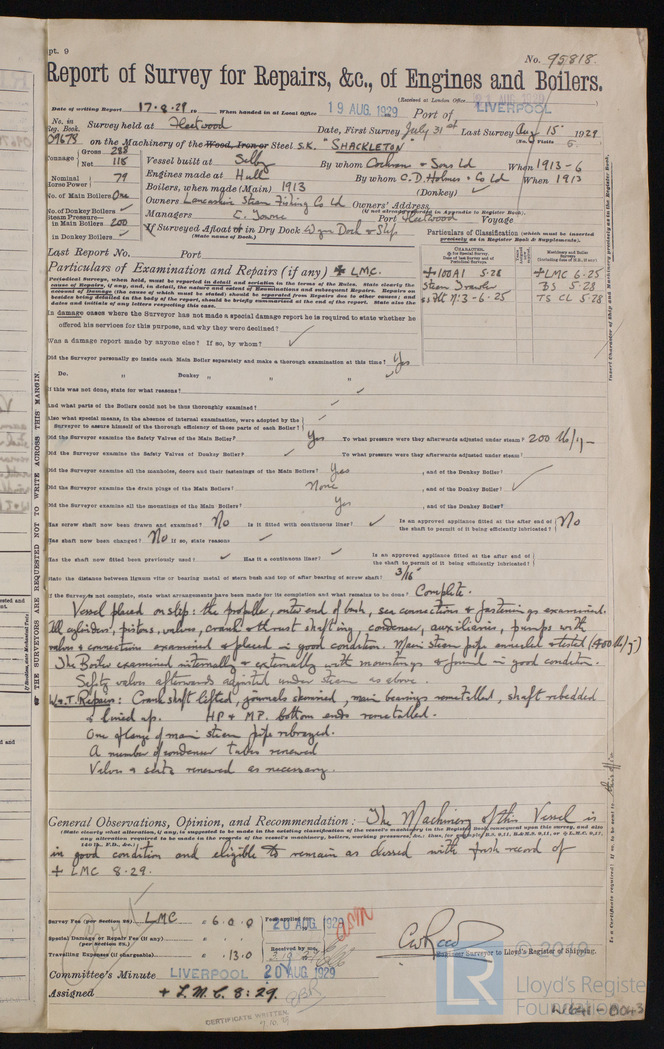 pt. 9
No. 95818
Report of Survey for Repairs, &c., of Engines and Boilers.
(Received at London Office
Date of writing Report 17.8.29 19 When handed in at Local Office 19 AUG. 1929 Port of LIVERPOOL
No. in Reg. Book. Survey held at Fleetwood Date, First Survey July 31st Last Survey Aug 15 1929
39678 on the Machinery of the Wood, Iron or Steel S.K. "SHACKLETON" (No. of Visits 5.
Tonnage Gross 288 Net 115 Vessel built at Selby By whom Cochran & Sons Ld When 1913-6
Nominal Horse Power 79 Engines made at Hull By whom C.D. Holmes & Co Ld When 1913
Boilers, when made (Main) 1913 (Donkey)
No. of Main Boilers One Owners Lancashire Steam Fishing Co Ld Owners' Address
(If not already recorded in Appendix to Register Book).
No. of Donkey Boilers Managers Port Fleetwood Voyage
Steam Pressure— in Main Boilers 200 If Surveyed Afloat or in Dry Dock Wyre Dock & Slip
in Donkey Boilers (State name of Dock.)
Particulars of Classification (which must be inserted precisely as in Register Book & Supplements).
Last Report No. Port
Particulars of Examination and Repairs (if any) + LMC.
+100A1 5.28
Steam Trawler
+LMC 6.25
BS 5.28
TS CL 5.28
Periodical Surveys, when held, must be reported in detail and seriatim in the terms of the Rules. State clearly the cause of Repairs, if any, and, in detail, the nature and extent of Examinations and subsequent Repairs. Repairs on account of Damage (the cause of which must be stated) should be separated from Repairs due to other causes; and besides being detailed in the body of the report, should be briefly summarised at the end of the report. State also the dates and initials of any letters respecting this case.
In damage cases where the Surveyor has not made a special damage report he is required to state whether he
offered his services for this purpose, and why they were declined?
Was a damage report made by anyone else? If so, by whom?
Did the Surveyor personally go inside each Main Boiler separately and make a thorough examination at this time? Yes
Do. „ Donkey „ „ „
If this was not done, state for what reasons?
And what parts of the Boilers could not be thus thoroughly examined?
Also what special means, in the absence of internal examination, were adopted by the
Surveyor to assure himself of the thorough efficiency of those parts of each Boiler?
Did the Surveyor examine the Safety Valves of the Main Boiler? Yes To what pressure were they afterwards adjusted under steam? 200 lb/□"
Did the Surveyor examine the Safety Valves of Donkey Boiler? To what pressure were they afterwards adjusted under steam?
Did the Surveyor examine all the manholes, doors and their fastenings of the Main Boilers? Yes , and of the Donkey Boiler?
Did the Surveyor examine the drain plugs of the Main Boilers? None , and of the Donkey Boiler?
Did the Surveyor examine all the mountings of the Main Boilers? Yes , and of the Donkey Boiler?
Has screw shaft now been drawn and examined? No Is it fitted with continuous liner? Is an approved appliance fitted at the after end of the shaft to permit of it being efficiently lubricated? No
Has shaft now been changed? No If so, state reasons
Has the shaft now fitted been previously used? Has it a continuous liner? Is an approved appliance fitted at the after end of the shaft to permit of it being efficiently lubricated?
State the distance between lignum vitæ or bearing metal of stern bush and top of after bearing of screw shaft? 3/16"
If the Survey is not complete, state what arrangements have been made for its completion and what remains to be done? Complete.
Vessel placed on slip: the propeller, outer end of bush, sea connections & fastenings examined.
All cylinders, pistons, valves, crank & thrust shafting, condenser, auxiliaries, pumps with
valves & connections examined & placed in good condition. Main steam pipe annealed & tested (400 lb/□")
The Boiler examined internally & externally with mountings & found in good condition.
Safety valves afterwards adjusted under steam as above.
W&T. Repairs: Crank shaft lifted, journals skimmed, main bearings remetalled, shaft rebedded
& lined up. HP & MP. bottom ends remetalled.
One flange of main steam pipe rebrazed.
A number of condenser tubes renewed
Valves & seats renewed as necessary.
General Observations, Opinion, and Recommendation: The Machinery of this Vessel is
in good condition and eligible to remain as classed with fresh record of
+ LMC 8.29.
Survey Fee (per Section 28) LMC 6.0.0 Fees applied for 20 AUG. 1929
Special Damage or Repair Fee (if any) (per Section 28.)
Travelling Expenses (if chargeable) 13.0 Received by me,
Engineer Surveyor to Lloyd's Register of Shipping.
Committee's Minute LIVERPOOL 20 AUG. 1929
Assigned + L.M.C. 8:29.
CERTIFICATE WRITTEN
© 2019
LR Lloyd's Register Foundation
THE SURVEYORS ARE REQUESTED NOT TO WRITE ACROSS THIS MARGIN.